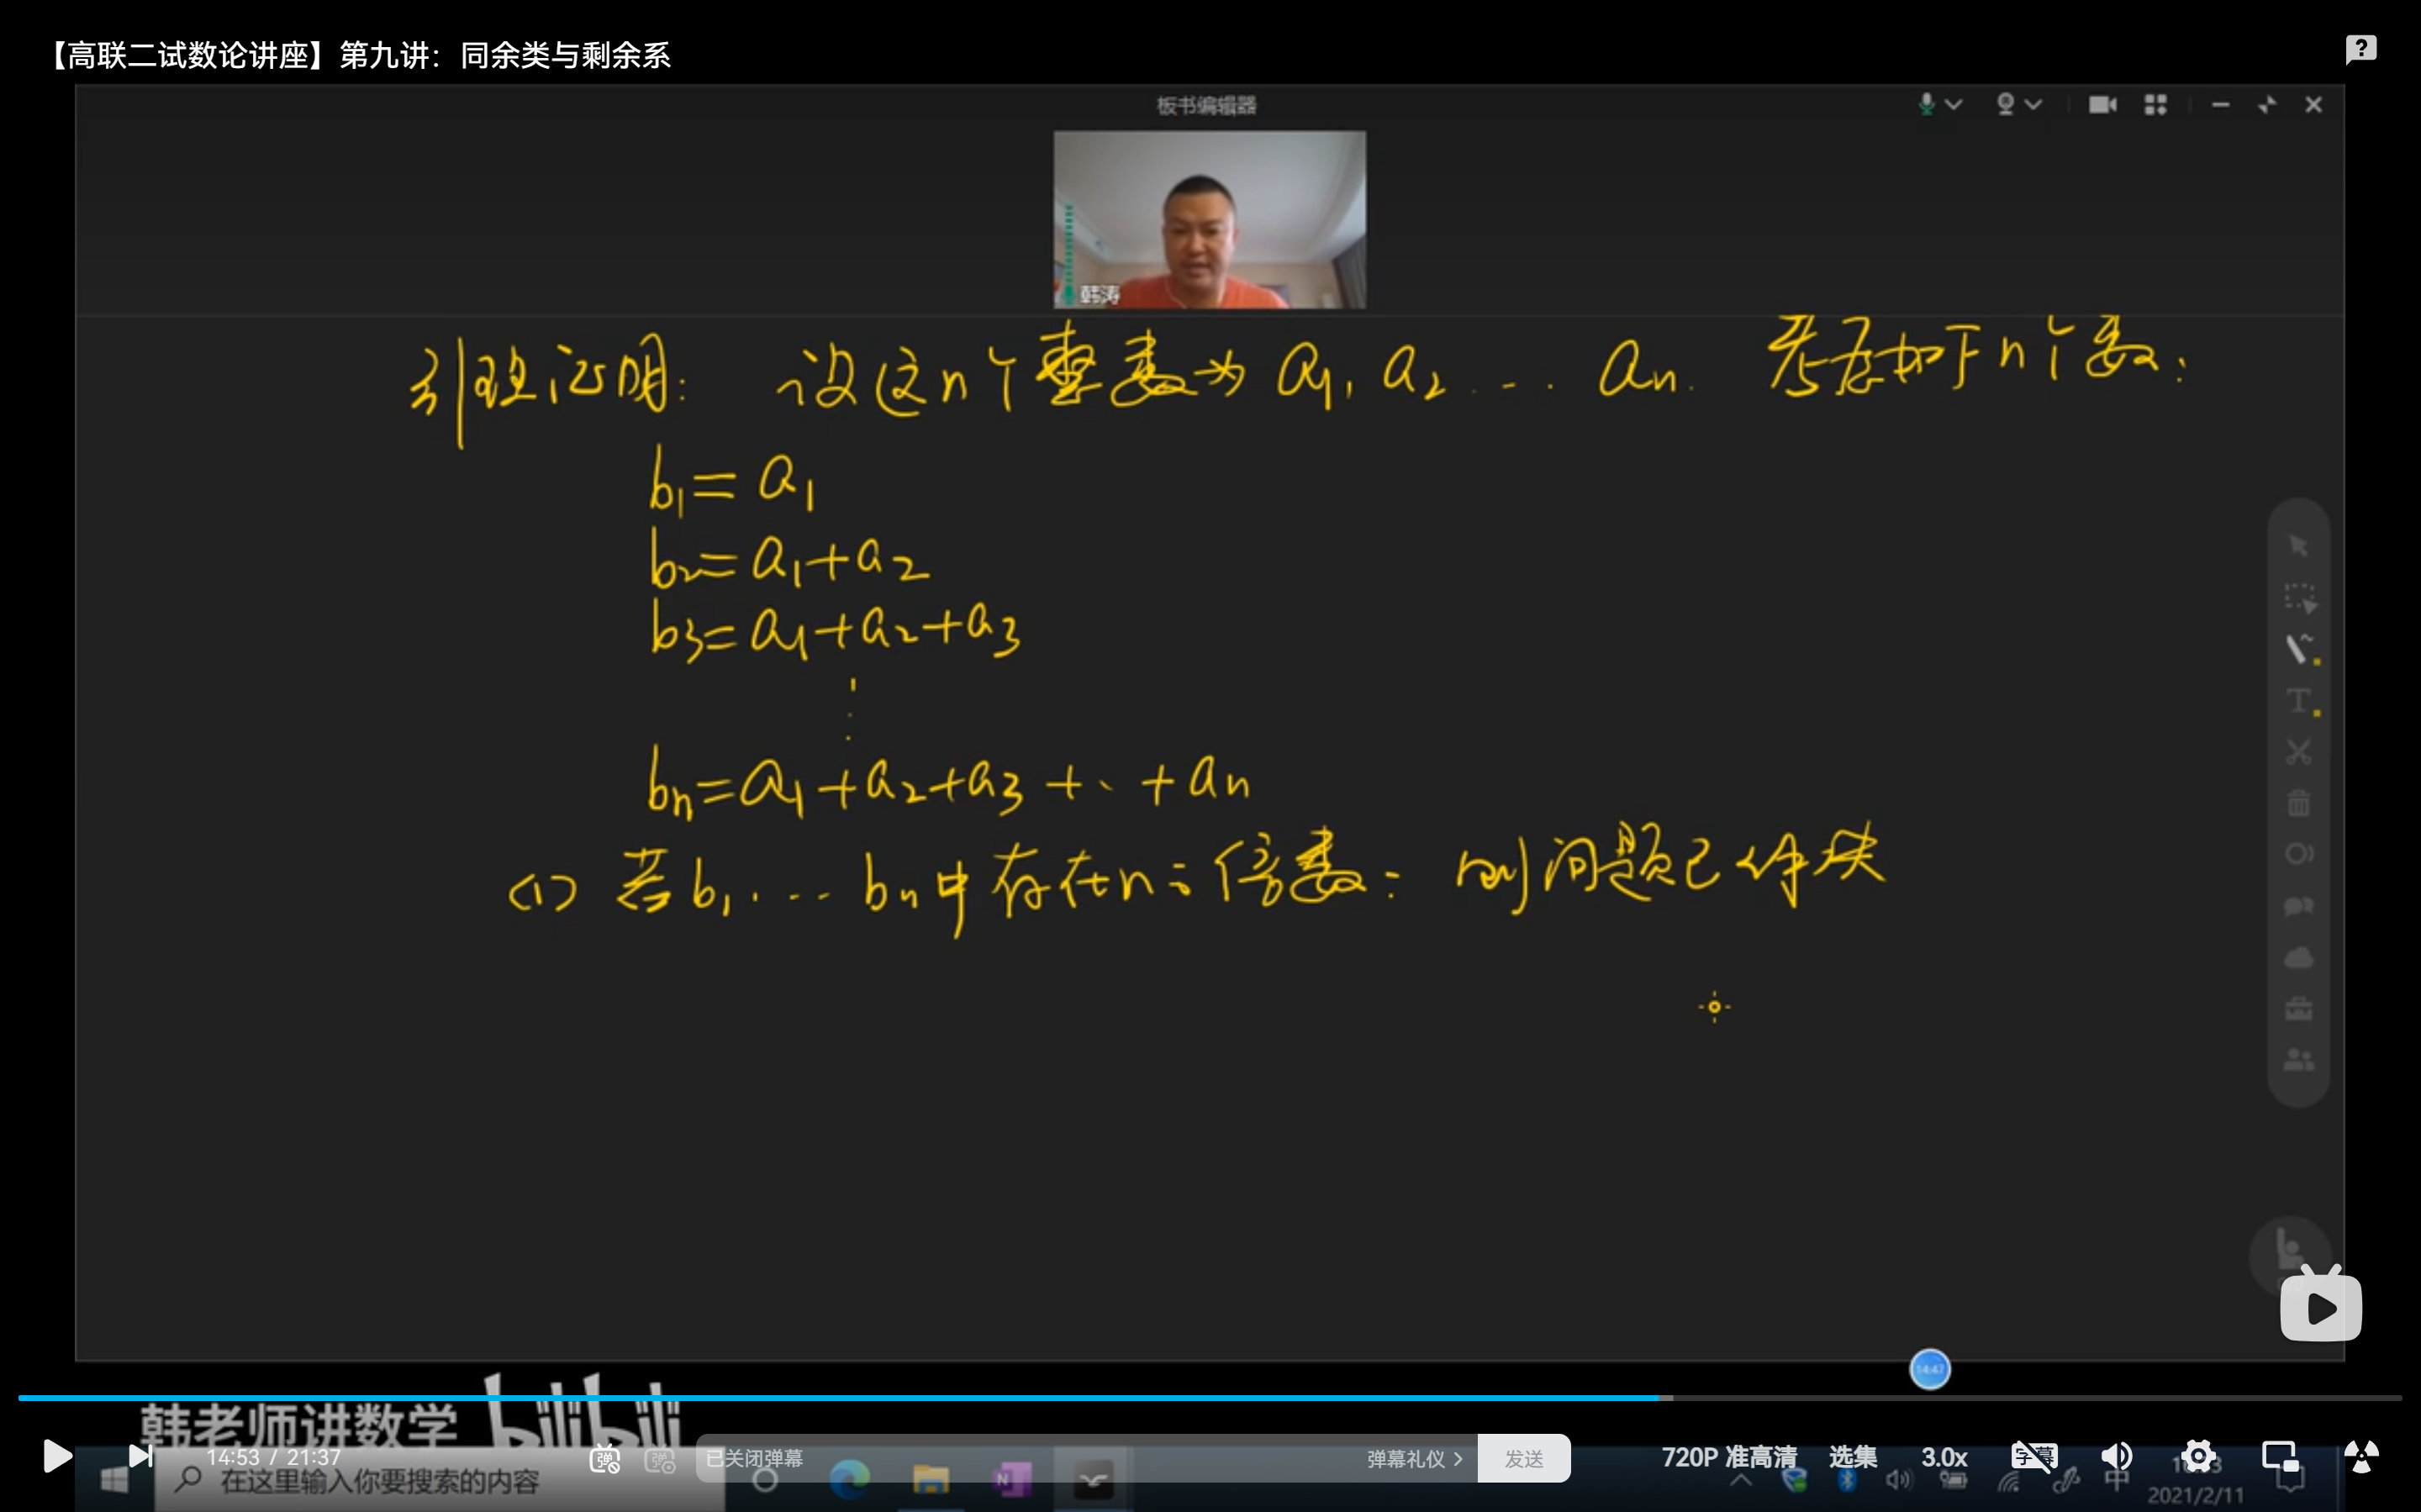 【高联二试数论讲座】第九讲：同余类与剩余系
板书编辑器
韩涛
引理证明： 设这n个整数为 a1, a2 ... an. 考虑如下n个数：
b1=a1
b2=a1+a2
b3=a1+a2+a3
⋮
bn=a1+a2+a3+..+an
(1) 若b1,...bn中存在n之倍数：则问题已解决
14:47
韩老师讲数学 bilibili
14:53 / 21:37
弹
已关闭弹幕
弹幕礼仪 >
发送
720P 准高清
选集
3.0x
字幕
在这里输入你要搜索的内容
中
2021/2/11